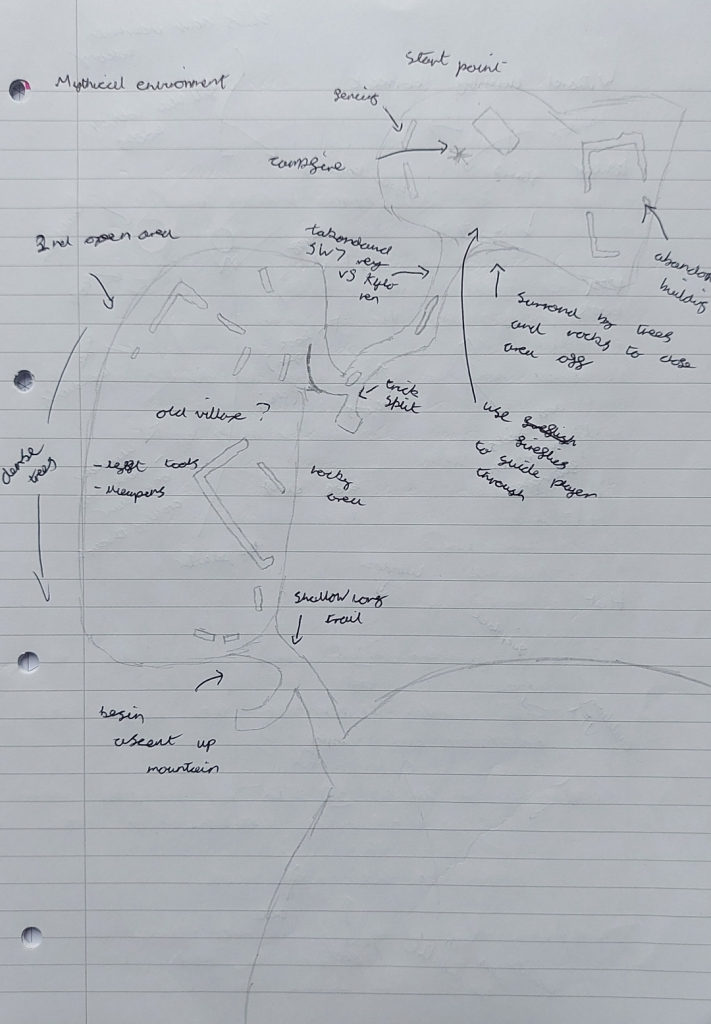 Start point
Mythical enviroment
campfire
2nd open area
SW7 rey
vs Kylo
ren
abandon
building
Surround by trees
and rocks to close
area off
trick
split
use
fireflies
to guide player
through
old village ?
dense
trees
- left tools
- weapons
rocky
area
shallow long
trail
begin
ascent up
mountain